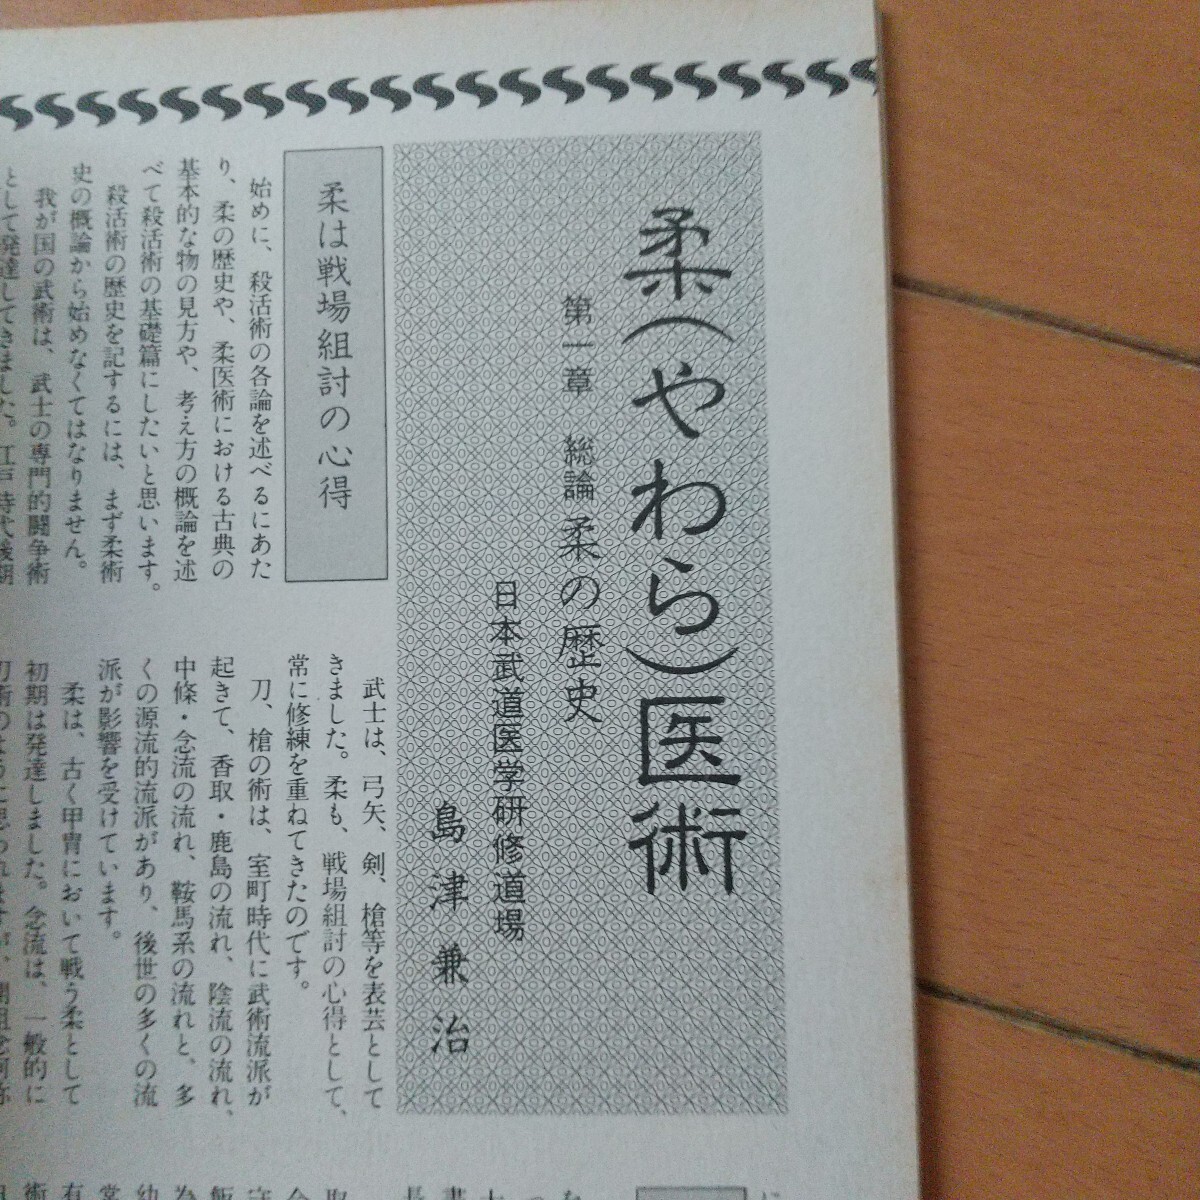 柔(やわら)医術
第一章 総論 柔の歴史
日本武道医学研修道場
島津兼治
柔は戦場組討の心得
始めに、殺活術の各論を述べるにあた
り、柔の歴史や、柔医術における古典の
基本的な物の見方や、考え方の概論を述
べて殺活術の基礎篇にしたいと思います。
殺活術の歴史を記するには、まず柔術
史の概論から始めなくてはなりません。
我が国の武術は、武士の専門的闘争術
として発達してきました。江戸時代後期
武士は、弓矢、剣、槍等を表芸として
きました。柔も、戦場組討の心得として、
常に修練を重ねてきたのです。
刀、槍の術は、室町時代に武術流派が
起きて、香取・鹿島の流れ、陰流の流れ、
中條・念流の流れ、鞍馬系の流れと、多
くの源流的流派があり、後世の多くの流
派が影響を受けています。
柔は、古く甲冑において戦う柔として
初期は発達しました。念流は、一般的に
刀術のように思われますが、開祖念阿弥